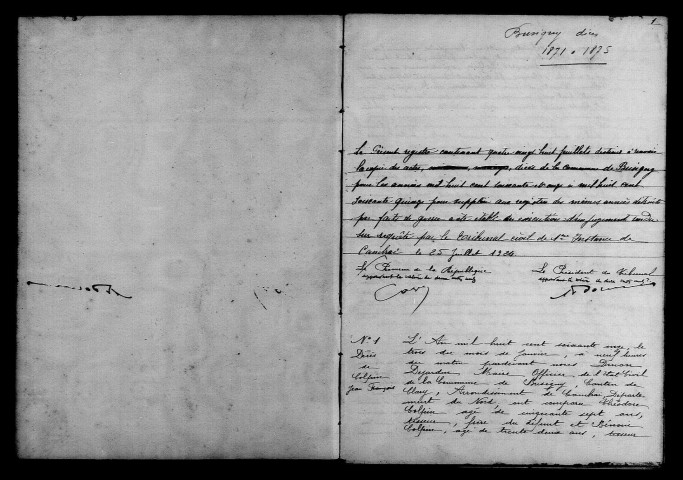 1
Busigny décès
1871 à 1875
Le Présent registre contenant quatre-vingt huit feuillets destinés à recevoir
la copie des actes, décès de la commune de Busigny
pour les années mil huit cent soixante et onze à mil huit cent
soixante quinze pour suppléer aux registres des mêmes années détruits
par faits de guerre a été établi en exécution d'un jugement rendu
sur requête par le Tribunal civil de 1ère Instance de
Cambrai le 25 Juillet 1924.
Le Procureur de la République
Le Président du Tribunal
N° 1
Décès
de
Colpin
Jean François
L'An mil huit cent soixante onze, le
trois du mois de Janvier, à neuf heures
du matin pardevant nous
Dejardin Maire Officier de l'Etat Civil
de la Commune de Busigny, Canton de
Clary, Arrondissement de Cambrai, Département
du Nord, ont comparu Théodore
Colpin âgé de cinquante sept ans,
tisseur, frère du défunt et
Colpin, âgé de trente deux ans, tisseur